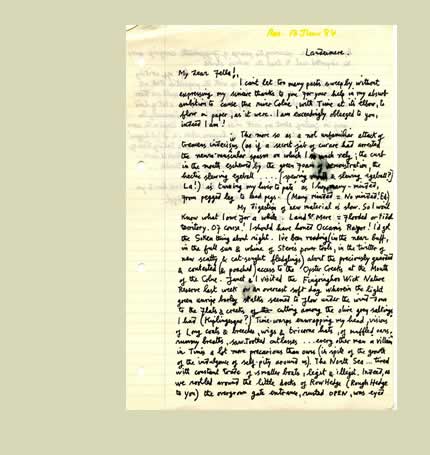 Rec. 13 June 84
Landermere.
My Dear Fella!,
I can't let too many posts sweep by without
expressing my sincere thanks to you for your help in my absurd
ambition to cause the river Colne, with Time at its elbow, to
flow on paper, as it were. I am exceedingly obleeged to you,
indeed I am!
The more so as a not unfamiliar attack of
(as if a secret jab of curare had arrested
the neuro-muscular spasm on which I so much rely; the
in the north the green demonstration, the
hectic slewing eyeball .... (spewing a slewing eyeball?)
La!) is turning my
from pegged leg to lead pegs. (Many minded = No minded. Ed)
My digestion of new material is slow. So I won't
know what I owe for a while. Land & Mere = Flooded or Tidal
territory. Of course, I should have
the Siken thing about right. I've been reading (in the near buff,
in the full sun & whine of Steve's power tools, in the twitter of
new scatty & cat-sought fledglings) about the preciously guarded
& contested (& poached) access to the Oyster Creeks at the Mouth
of the Colne. Janet & I visited the Fingringhoe Wick Nature
Reserve last week. An overcast soft day wherein the light
green barley stalks seemed to flow under the wind down
to the flats & creeks of the cutting among the olive grey saltings
& hard (Kiplingesque?) Time-warps enwrapping my head, visions
of Long coats & breeches, wigs & tricorne hats, of muffled oars,
rummy breaths, saw-toothed cutlasses ... every other man a villain
in Times a lot more precarious than ours (in spite of the growth
of the indulgence of self-pity around us). The North Sea ... tired
with constant trade of smaller boats, legit & illegit. Indeed, as
we nobbled around the little docks of RowHedge (Rough Hedge
to you) the overgrown gate entrance, rusted OPEN, was eyed